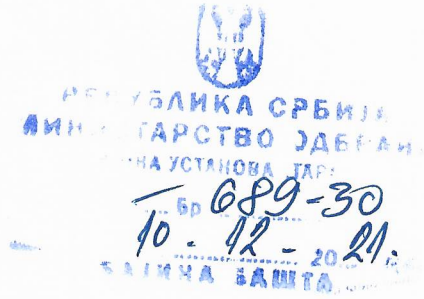 РЕПУБЛИКА СРБИЈА
МИНИСТАРСТВО ОДБРАНЕ
ВОЈНА УСТАНОВА "ТАРА"
Бр 689-30
10. 12. 2021.
БАЈИНА БАШТА